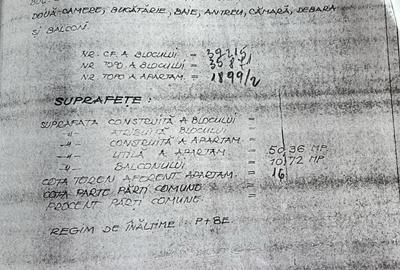 DOUĂ CAMERE, BUCĂTĂRIE, BAIE, ANTREU, CĂMARĂ, DEBARA
ȘI BALCON.
NR. CF. A BLOCULUI =
NR TOPO A BLOCULUI =
NR TOPO A APARTAM. = 1899/2
SUPRAFEȚE :
SUPRAFAȚA CONSTRUITĂ A BLOCULUI =
-"- ATRIBUITĂ BLOCULUI =
-"- CONSTRUITĂ A APARTAM. =
-"- UTILĂ A APARTAM. = 50,36 MP
-"- BALCONULUI = 10,72 MP
COTA TEREN AFERENT APARTAM. = 16
COTA PARTE PĂRȚI COMUNE =
PROCENT PĂRȚI COMUNE
REGIM DE ÎNĂLȚIME : P+8E